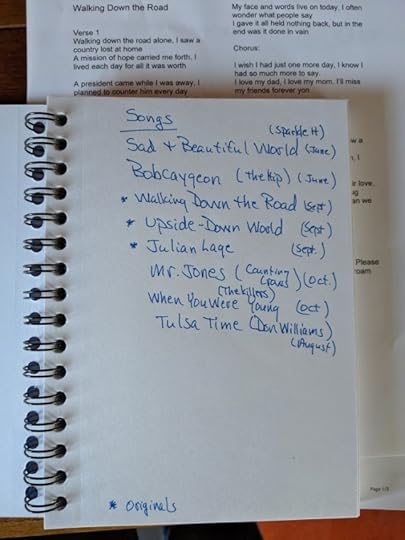 Walking Down the Road
Verse 1
Walking down the road alone, I saw a
country lost at home
A mission of hope carried me forth, I
lived each day for all it was worth
A president came while I was away, I
planned to counter him every day
My face and words live on today, I often
wonder what people say
I gave it all held nothing back, but in the
end was it done in vain
Chorus:
I wish I had just one more day, I know I
had so much more to say.
I love my dad, I love my mom. I'll miss
my friends forever yon
Songs
(Sparkle H)
Sad + Beautiful World (June)
Bobcaygeon (The Hip) (June)
* Walking Down the Road (Sept)
* Upside-Down World (Sept)
* Julian Lage (Sept.)
Mr. Jones (Counting Crows) (Oct.)
(The Killers)
When You Were Young (Oct)
Tulsa Time (Don Williams)
(August)
* originals
w a
, I
ir love,
an we
Please
roam
Page 1/2